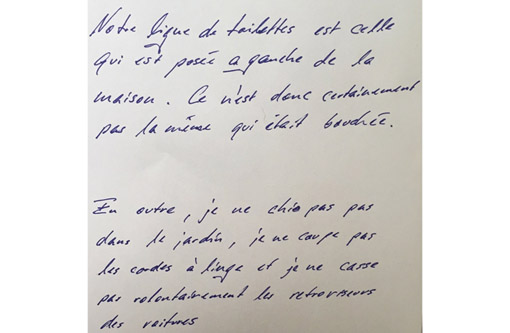 Notre ligne de toilettes est celle
qui est posée a gauche de la
maison. Ce n'est donc certainement
pas la même qui était bouchée.
En outre, je ne chie pas pas
dans le jardin, je ne coupe pas
les cordes à linge et je ne casse
pas volontairement les retroviseurs
des voitures